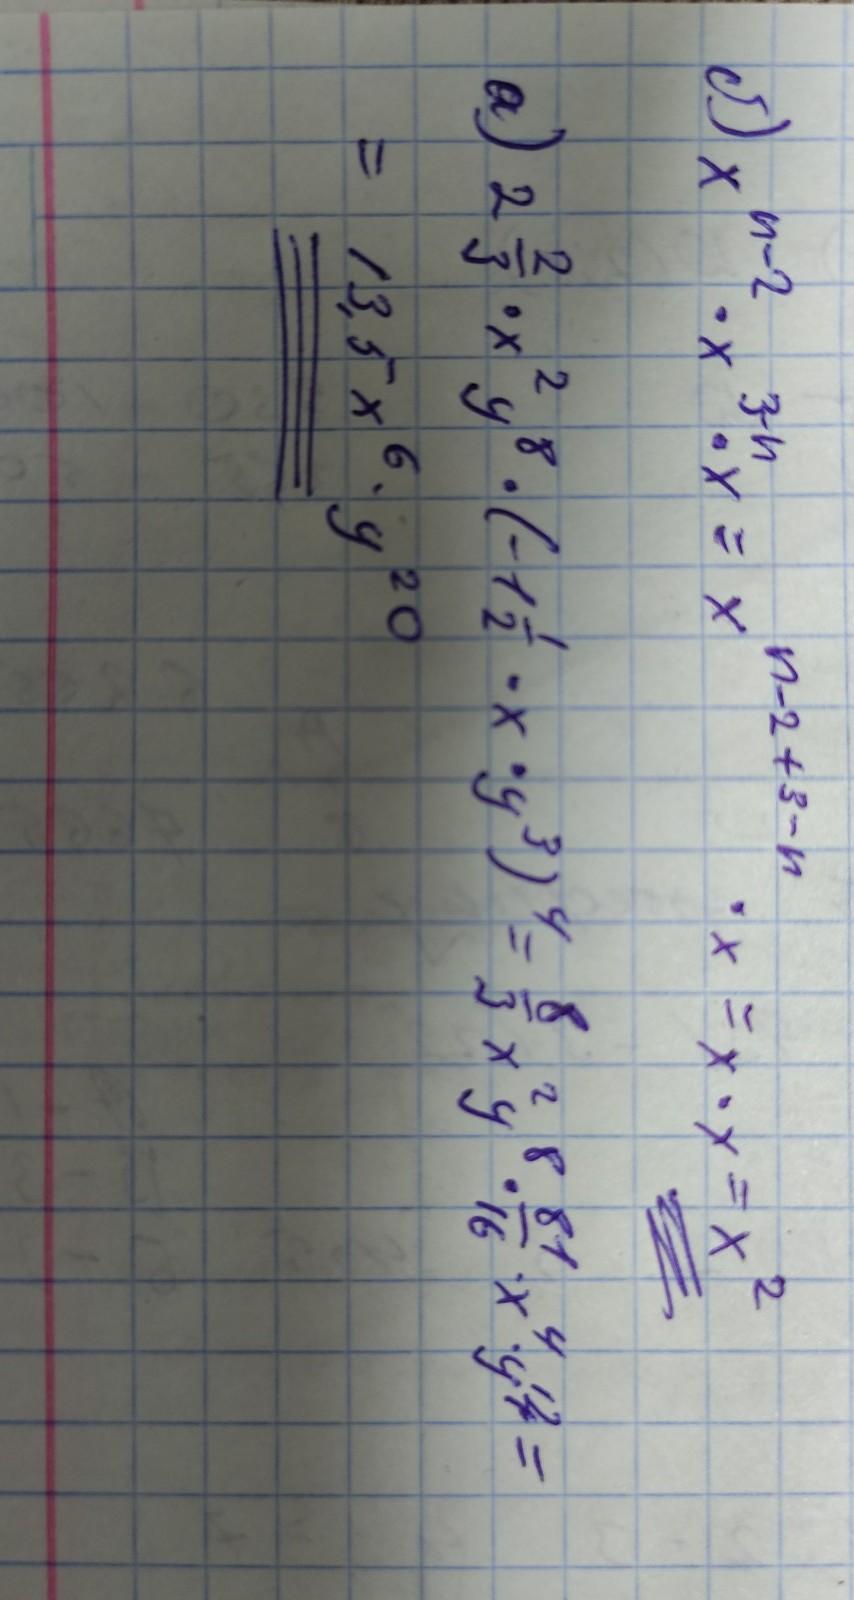 б) x^(n-2) · x^(3-n) · x = x^(n-2+3-n) · x = x · x = x^2
а) 2 2/3 · x^2 y^8 · (-1 1/2 · x · y^3)^4 = 8/3 x^2 y^8 · 81/16 · x^4 · y^12 =
= 13,5 x^6 · y^20